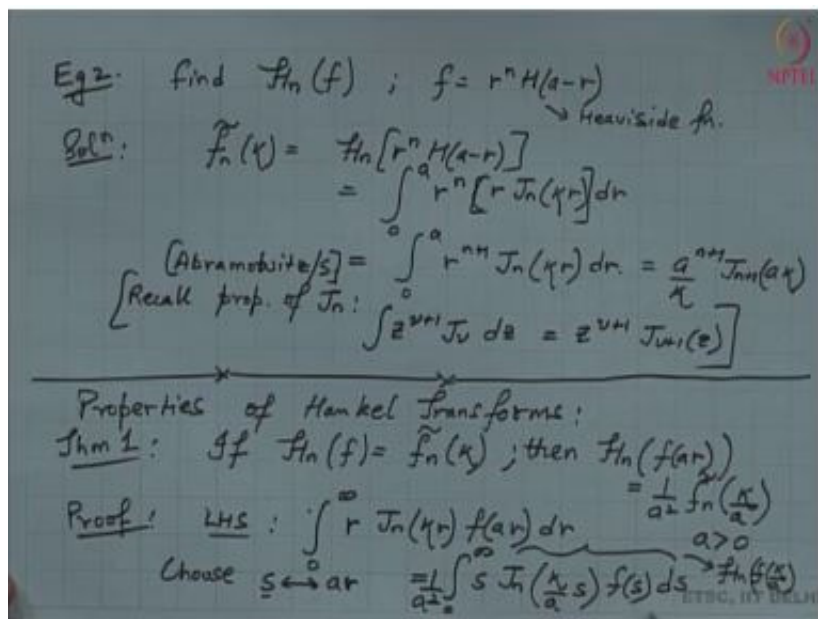 Eg 2. find ℋn (f) ; f = r^n H(a-r)
NPTEL
↳ Heaviside fn.
Sol^n: f̃n(κ) = ℋn [r^n H(a-r)]
= ∫_0^a r^n [r Jn(κr)] dr
[Abramowitz/S] = ∫_0^a r^{n+1} Jn(κr) dr. = a^{n+1}/κ J_{n+1}(aκ)
[Recall prop. of Jn:
∫ z^{ν+1} Jν dz = z^{ν+1} J_{ν+1}(z)]
Properties of Hankel Transforms:
Thm 1: If ℋn(f) = f̃n(κ) ; then ℋn(f(ar))
= 1/a² f̃n(κ/a)
a>0
Proof: LHS : ∫_0^∞ r Jn(κr) f(ar) dr
Choose s ↔ ar = 1/a² ∫_0^∞ s Jn(κ/a s) f(s) ds
ETSC, IIT DELHI